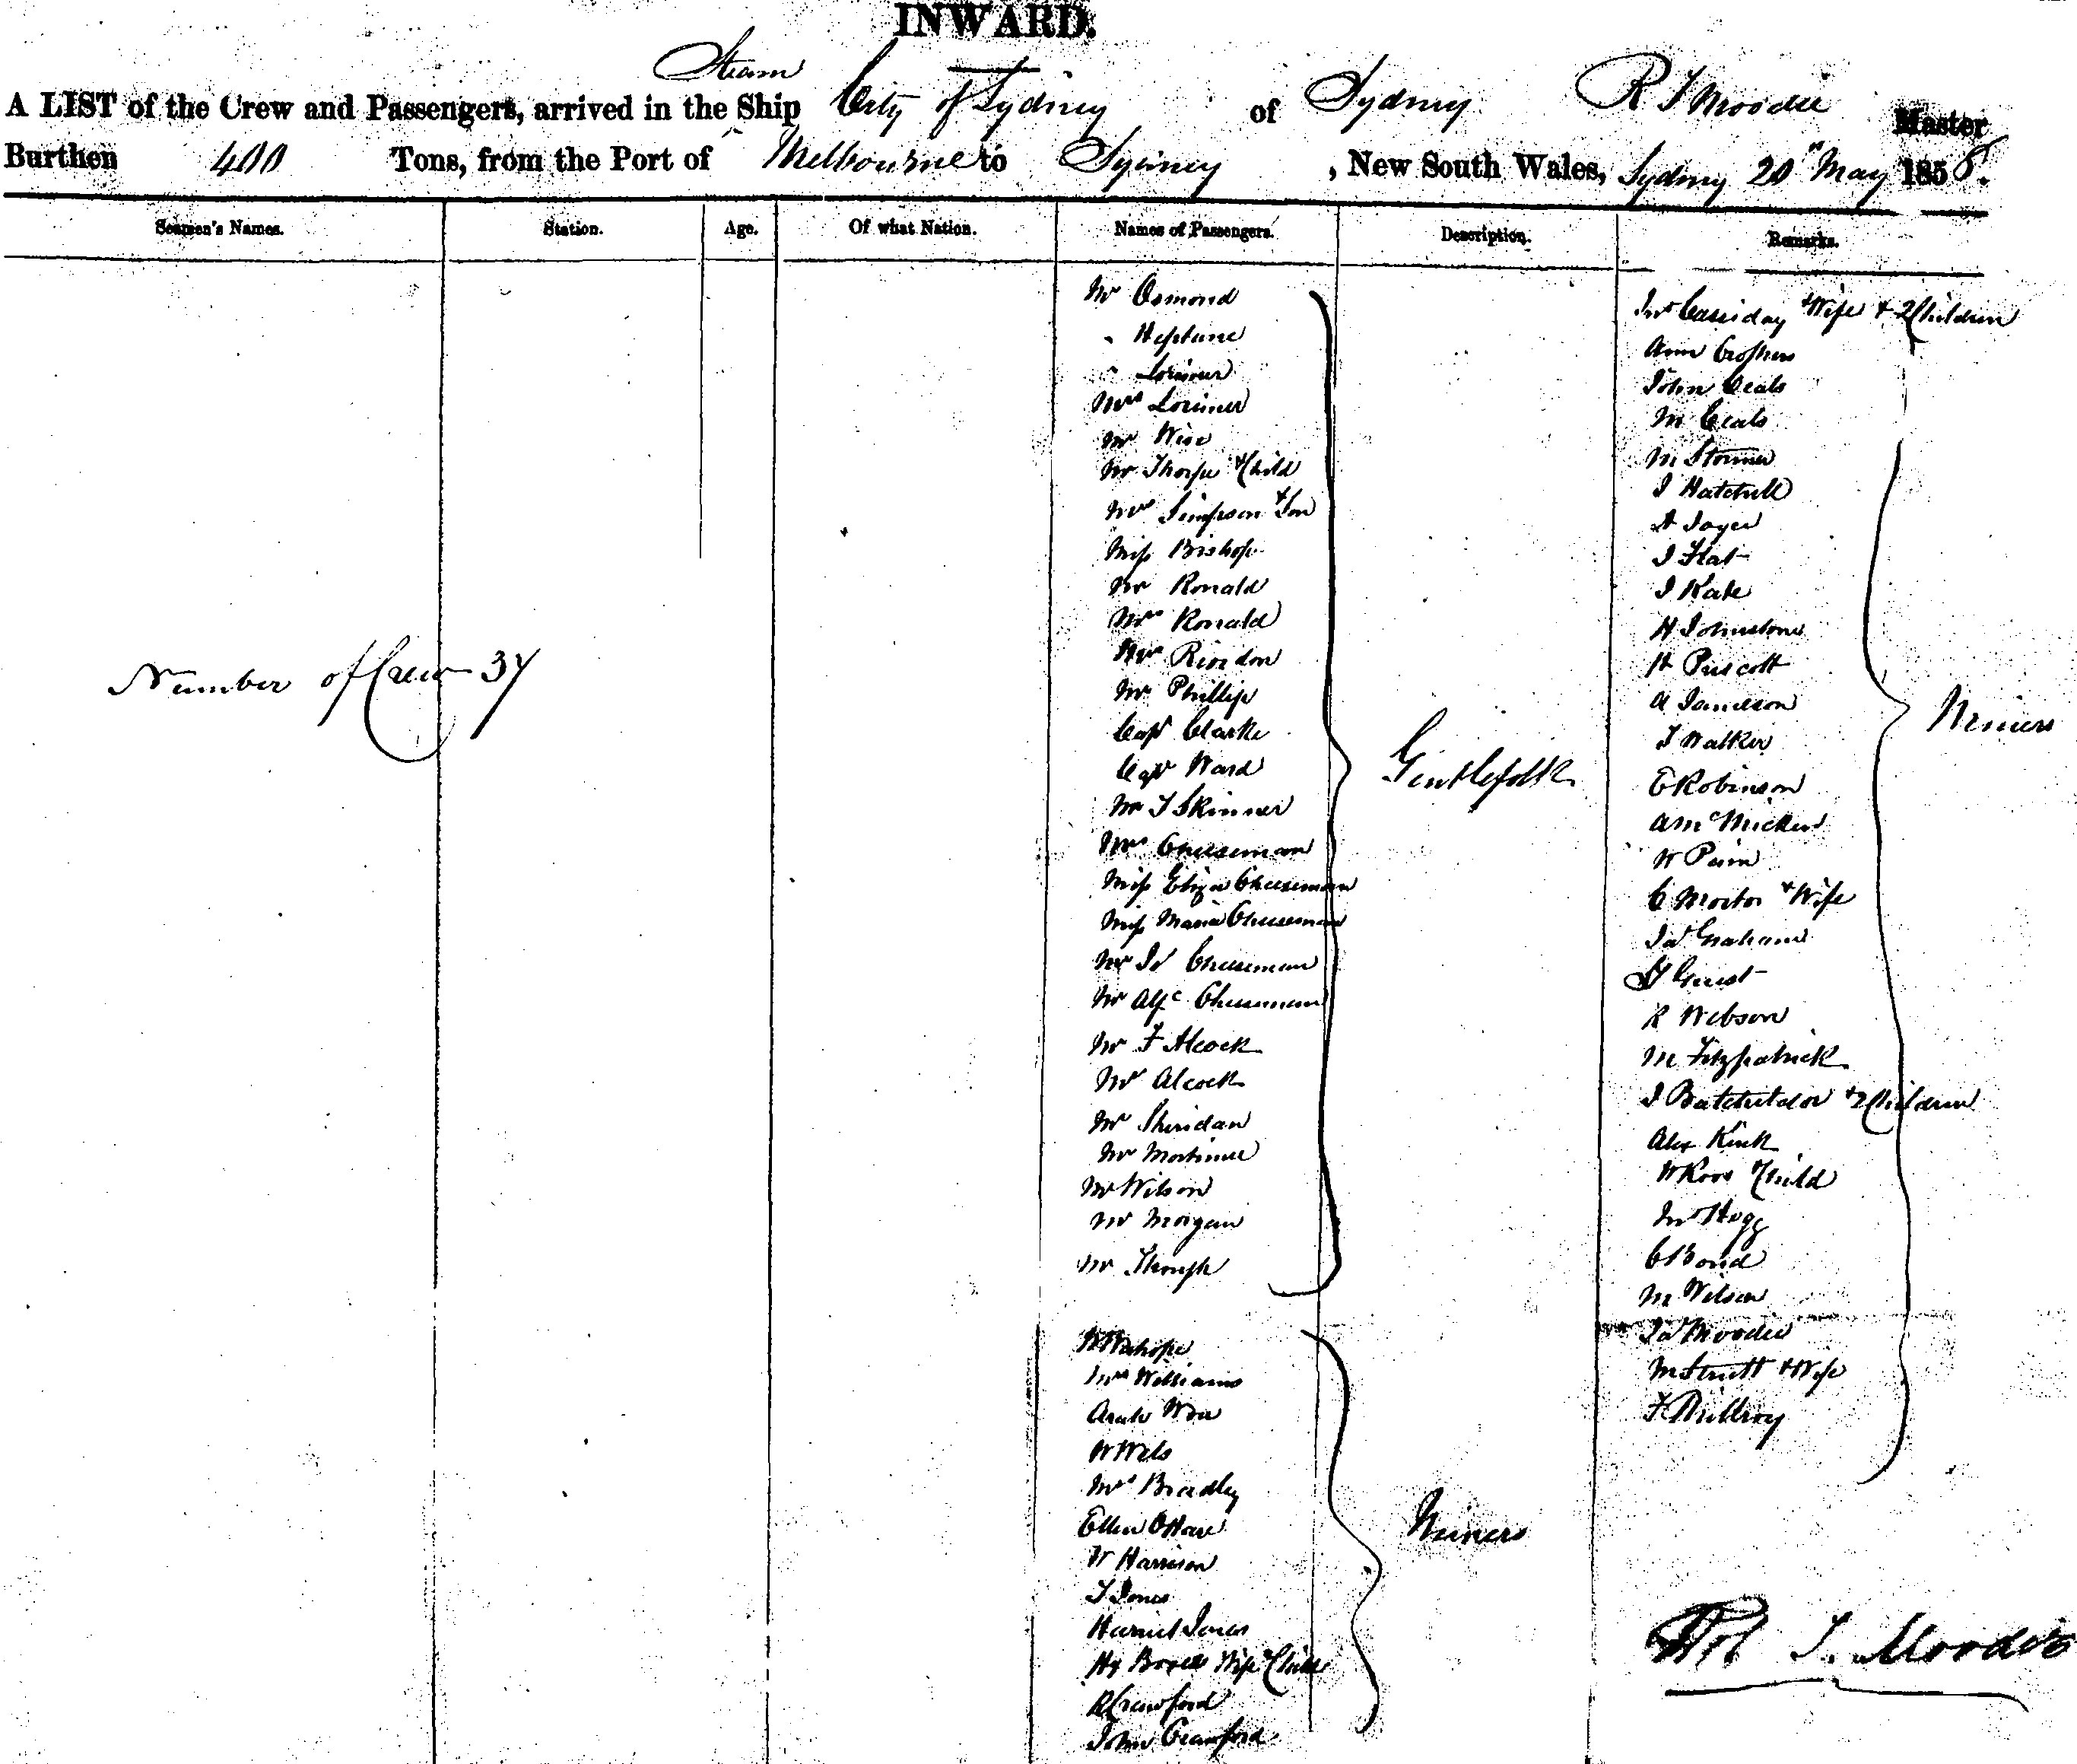 INWARD.
Steam
A LIST of the Crew and Passengers, arrived in the Ship City of Sydney of Sydney R T Moodie Master
Burthen 400 Tons, from the Port of Melbourne to Sydney, New South Wales, Sydney 20" May 1858.
Seamen's Names. Station. Age. Of what Nation. Names of Passengers. Description. Remarks.
Number of Crew 37
Mr Osmond
" Neptune
" Lorimer
Mrs Lorimer
Mr Wise
Mr Thorpe & Child
Mrs Simpson & Son
Miss Bishop
Mr Ronald
Mrs Ronald
Riordon
Mr Phillip
Capt Clarke
Capt Ward
Mr T Skinner
Mrs Cheeseman
Miss Eliza Cheeseman
Miss Maria Cheeseman
Mr Cheeseman
Mr Alf Cheeseman
Mr F Alcock
Mr Alcock
Mr Sheridan
Mr Mortimer
Mr Wilson
Mr Morgan
Mr
Gentlefolk
Mrs Williams
W Wels
Mrs Bradley
Ellen O'Hare
W Harrison
T Jones
Harriet Jones
Wife & Child
R Crawford
John Crawford
Miners
Cassiday & Wife & 2 Children
Ann
John Ceals
M Ceals
M Stormer
J Hatchell
J Flat
J Kate
H Johnstone
H Prescott
A Jameson
T Walker
E Robinson
A McMicken
W
C Morton & Wife
Jas Graham
Guest
R Webson
M Fitzpatrick
J Batcheldor & 2 Children
Alex Kirk
W Ross & Child
Hogg
C Bond
M Wilson
Jas Moodie
M Strutt & Wife
F Millroy
Miners
Rob T. Moodie